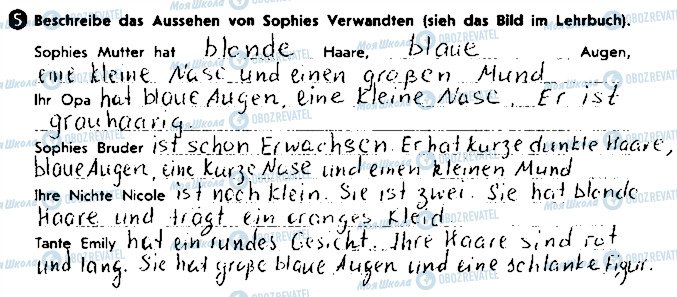 5 Beschreibe das Aussehen von Sophies Verwandten (sieh das Bild im Lehrbuch).
Sophies Mutter hat blonde Haare, blaue Augen,
eine kleine Nase und einen großen Mund
Ihr Opa hat blaue Augen, eine kleine Nase. Er ist
grauhaarig.
Sophies Bruder ist schon Erwachsen. Er hat kurze dunkle Haare,
blaue Augen, eine kurze Nase und einen kleinen Mund
Ihre Nichte Nicole ist noch klein. Sie ist zwei. Sie hat blonde
Haare und trägt ein oranges Kleid.
Tante Emily hat ein rundes Gesicht. Ihre Haare sind rot
und lang. Sie hat große blaue Augen und eine schlanke Figur.